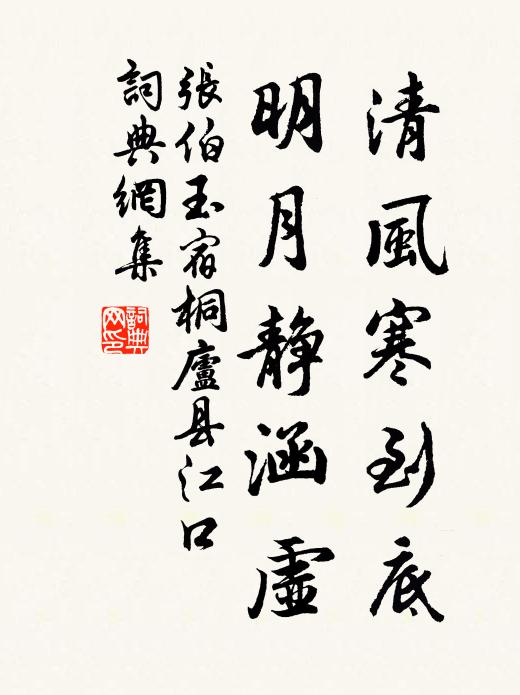 清風寒到底
明月静涵虛
張伯玉宿桐廬县江口
詞典網集
詞典
网印